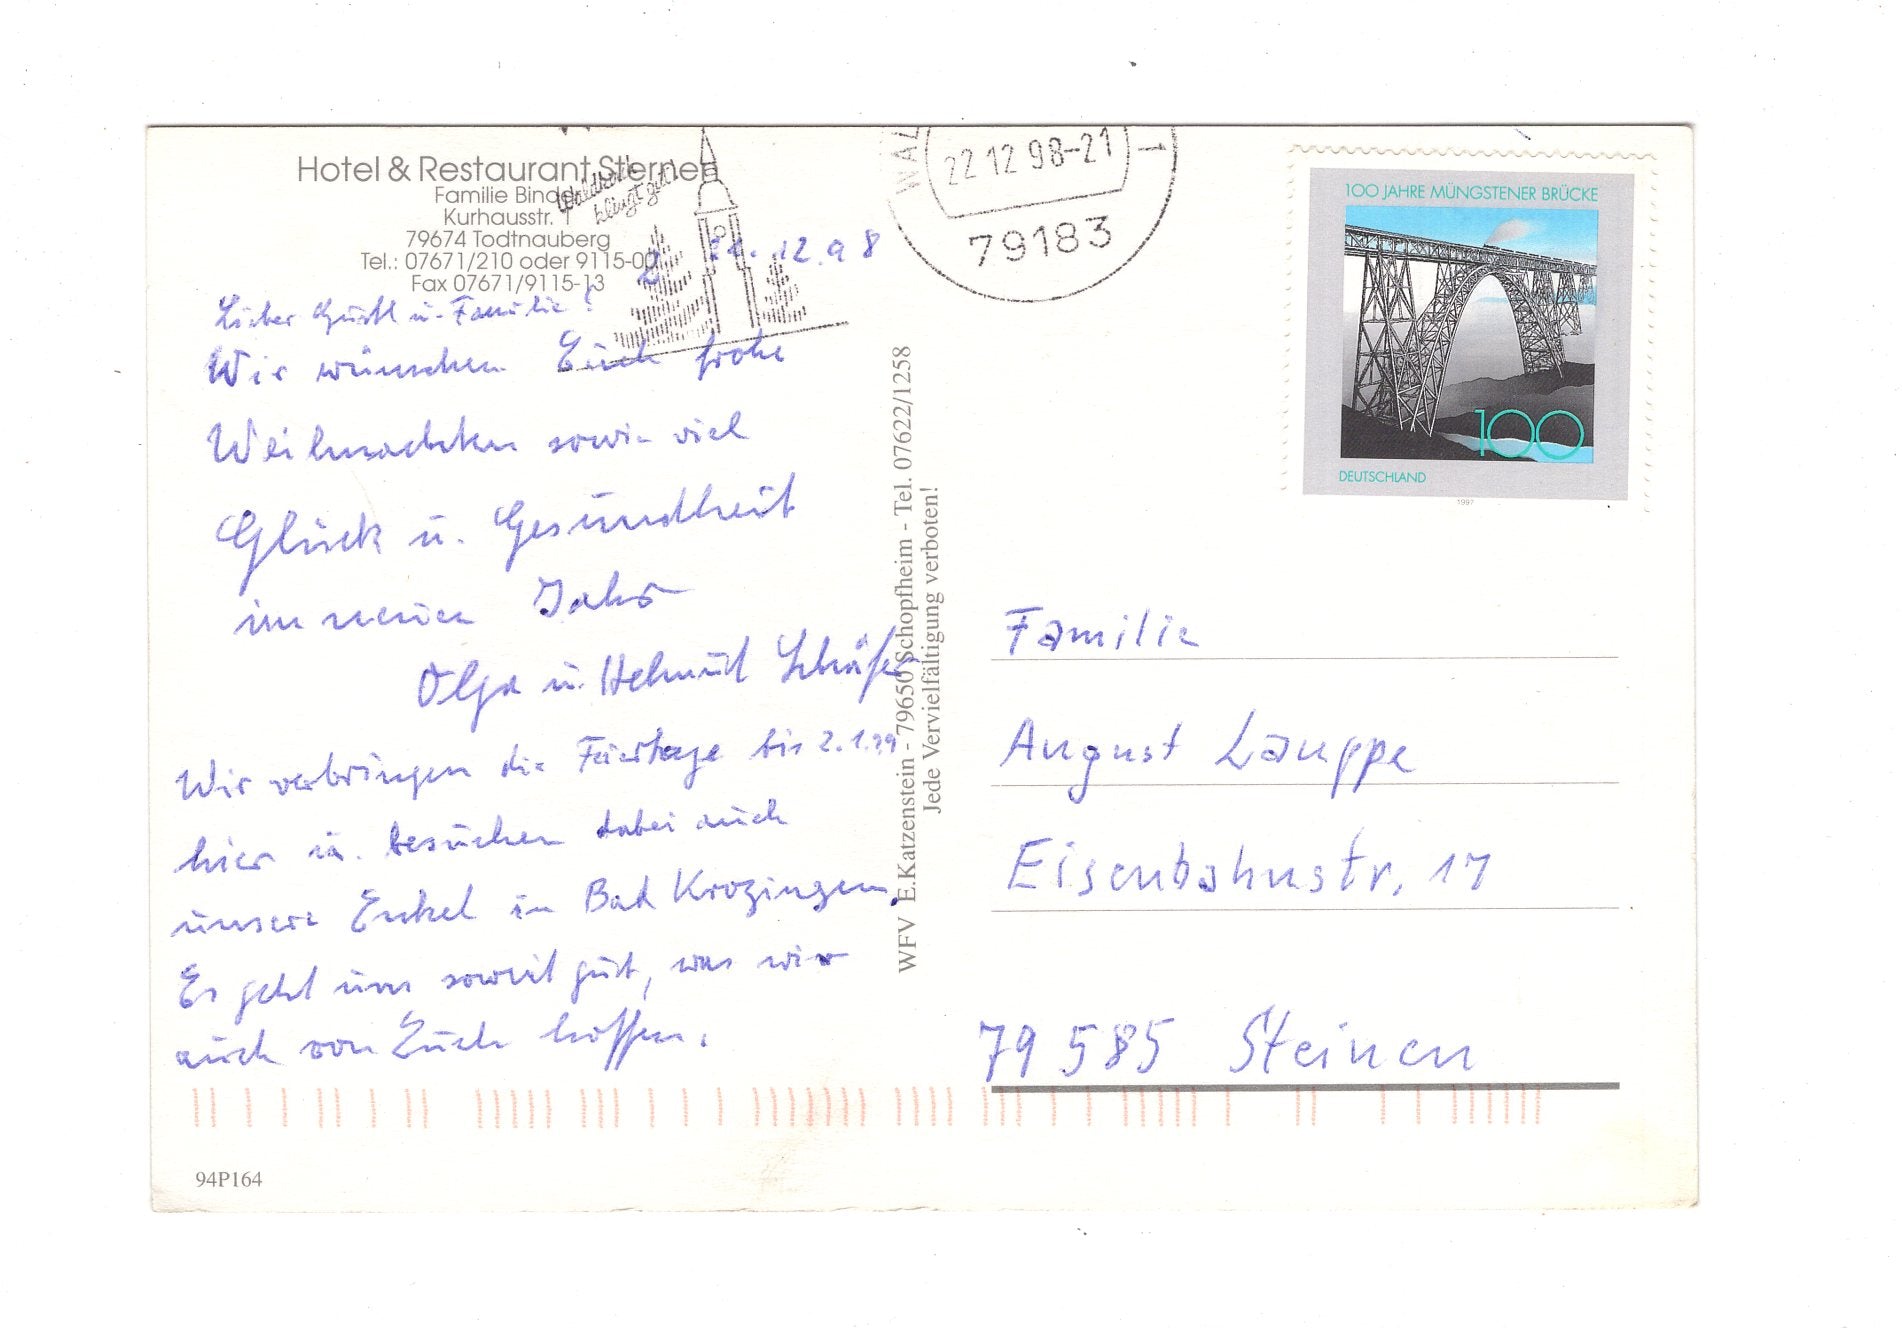 Hotel & Restaurant Sternen
Familie Binder
Kurhausstr. 1
79674 Todtnauberg
Tel.: 07671/210 oder 9115-00
Fax 07671/9115-13
Waldkirch
klingt gut
22.12.98-21
79183
100 JAHRE MÜNGSTENER BRÜCKE
100
DEUTSCHLAND
1997
21.12.98
Lieber Gustl u. Familie!
Wir wünschen Euch frohe
Weihnachten sowie viel
Glück u. Gesundheit
im neuen Jahr
Olga u. Helmut Schäfer
Wir verbringen die Feiertage bis 2.1.99
hier u. besuchen dabei auch
unsere Enkel in Bad Krozingen.
Es geht uns soweit gut, was wir
auch von Euch hoffen.
WFV E.Katzenstein - 79650 Schopfheim - Tel. 07622/1258
Jede Vervielfältigung verboten!
Familie
August Lauppe
Eisenbahnstr. 17
79585 Steinen
94P164